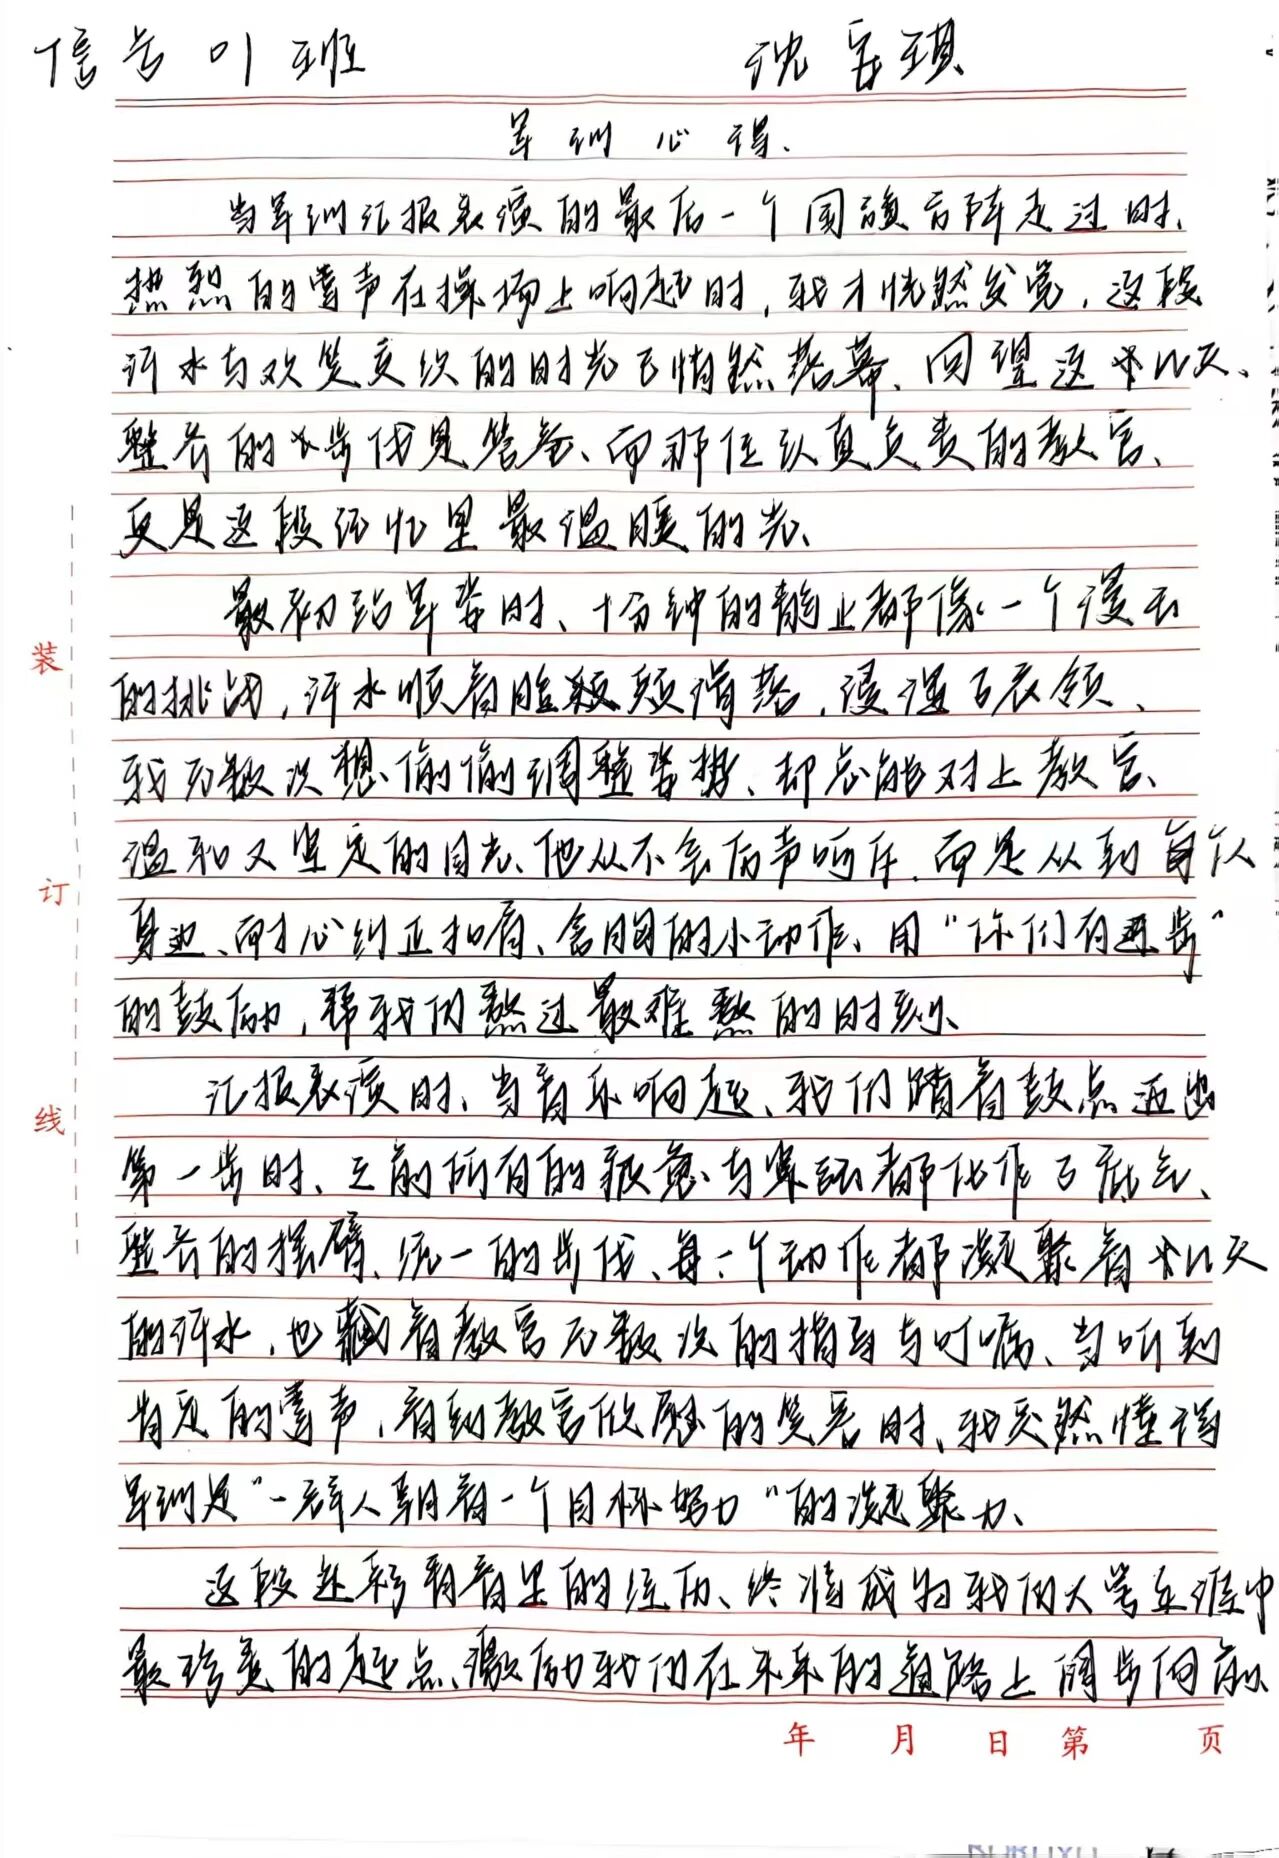 信号01班 沈宝琪
军训心得.
当军训汇报表演的最后一个国旗方阵走过时、
热烈的掌声在操场上响起时,我才恍然发觉,这段
汗水与欢笑交织的时光已悄然落幕、回望这十几天、
整齐的步伐是答卷、而那位认真负责的教官、
更是这段记忆里最温暖的光、
最初站军姿时、十分钟的静止都像一个漫长
的挑战,汗水顺着脸颊滑落,浸湿了衣领、
我无数次想偷偷调整姿势、却总能对上教官、
温和又坚定的目光、他从不会厉声呵斥.而是从到每个人
身边、耐心纠正扣肩、含胸的小动作、用“你们有进步”
的鼓励,帮我们熬过最难熬的时刻、
汇报表演时、当音乐响起、我们踏着鼓点迈出
第一步时、之前所有的疲惫与紧张都化作了底气、
整齐的摆臂、统一的步伐、每一个动作都凝聚着十几天
的汗水,也藏着教官无数次的指导与叮嘱、当听到
肯定的掌声,看到教官欣慰的笑容时、我突然懂得
军训是“一群人朝着一个目标努力”的凝聚力、
这段迷彩青春里的经历、终将成为我们大学生涯中
最珍贵的起点、激励我们在未来的道路上阔步向前
装
订
线
年 月 日 第 页